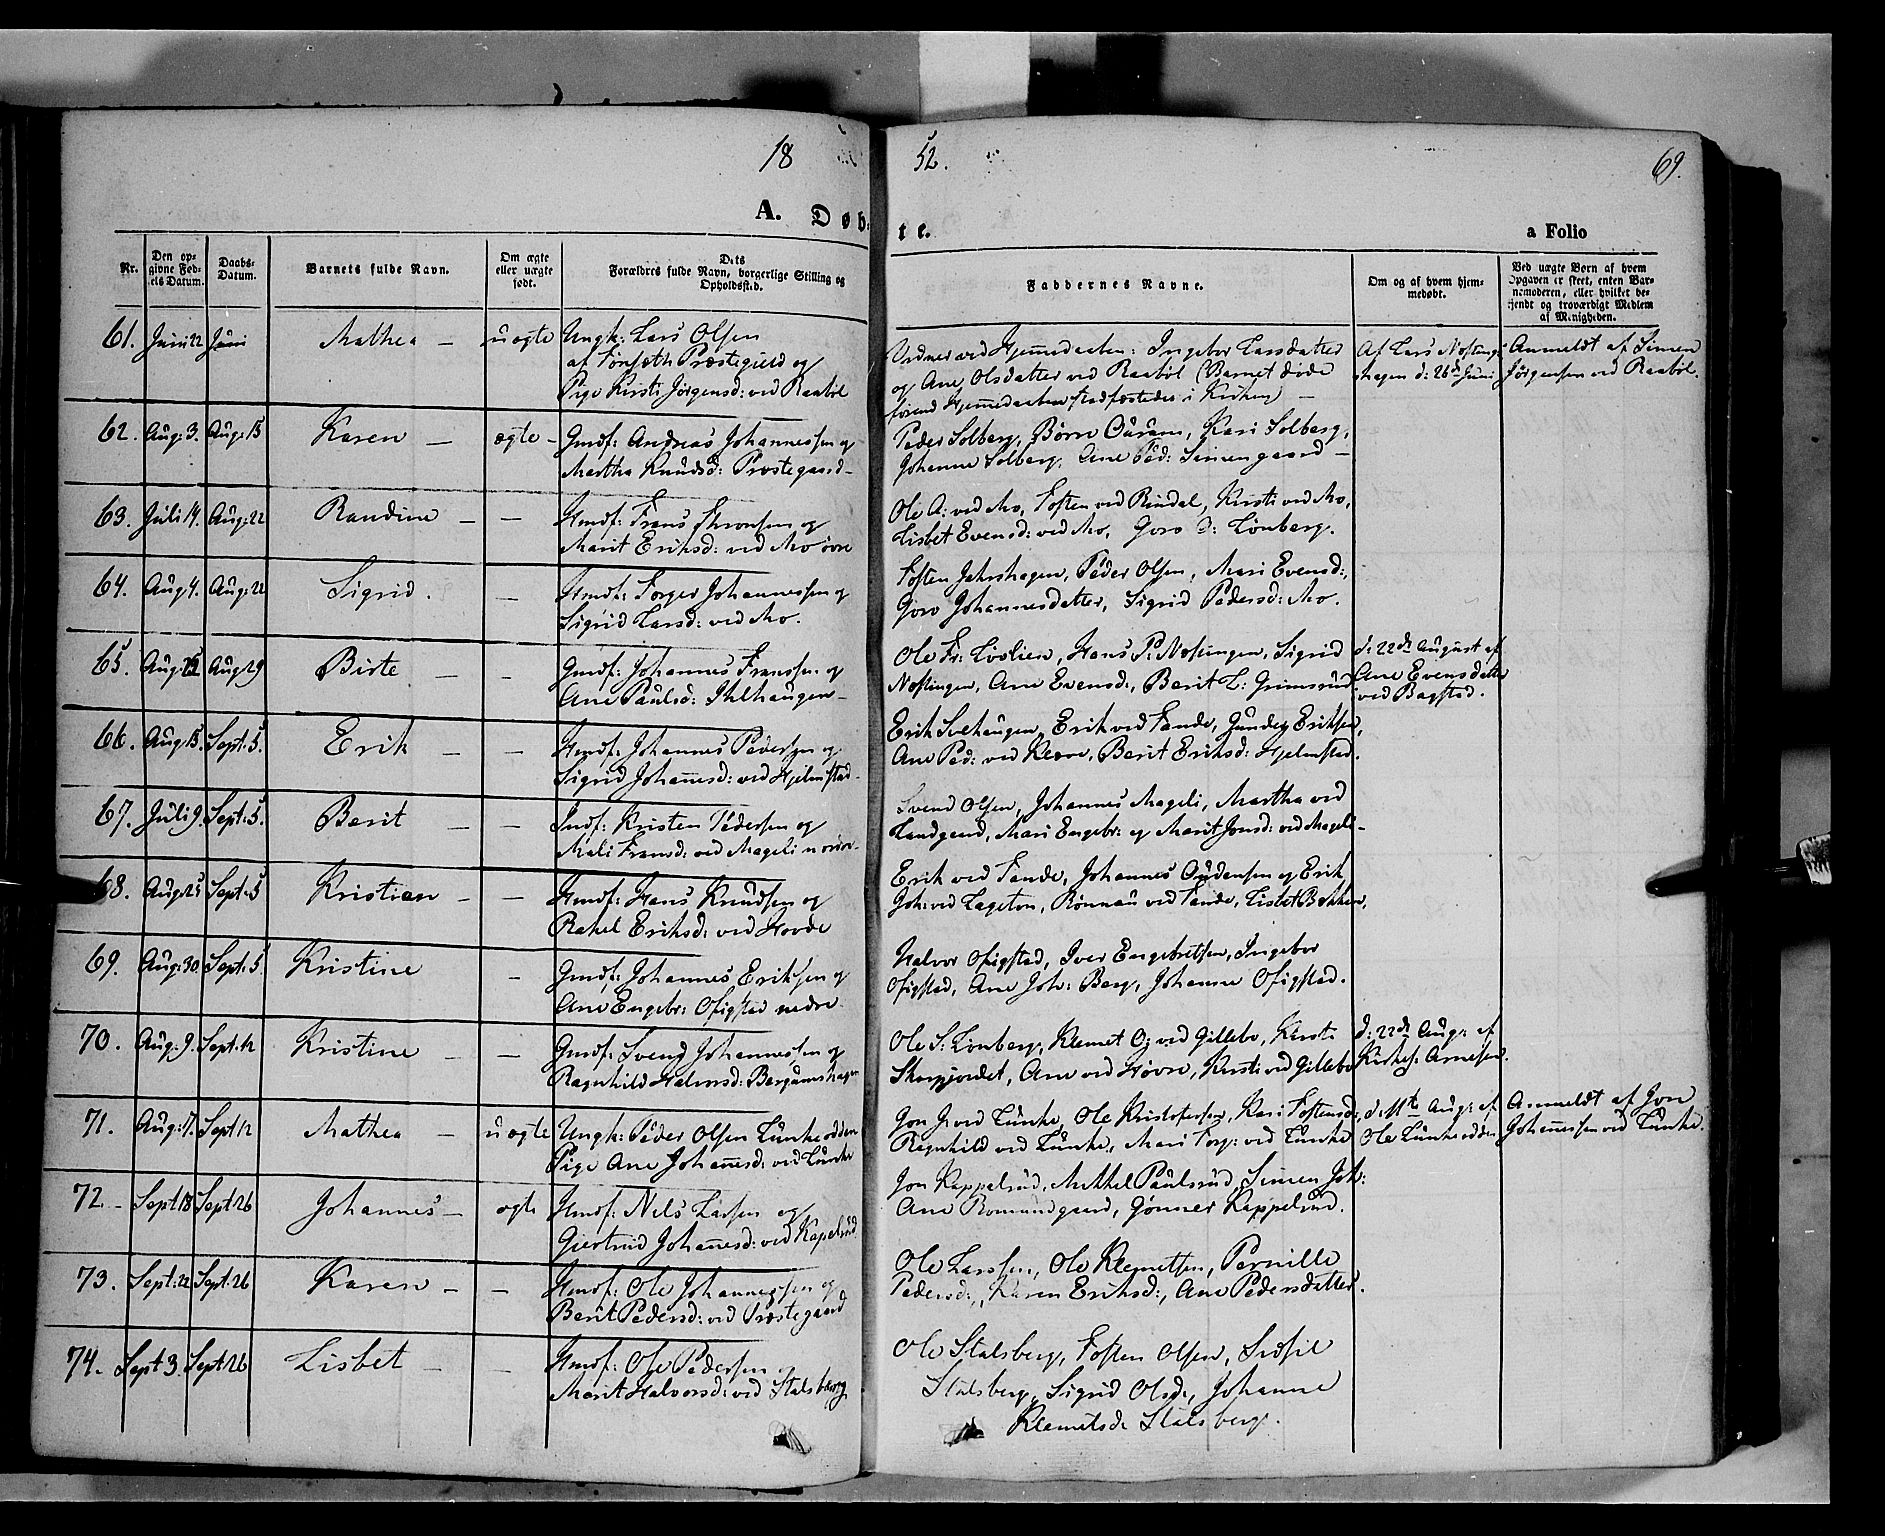 18
52.
69.
A. Døb-
te.
a Folio
Nr.
Den op-
givne Fød-
els Datum.
Daabs-
Datum.
Barnets fulde Navn.
Om ægte
eller uægte
født.
Dets
Forældres fulde Navn, borgerlige Stilling og
Opholdssted.
Faddernes Navne.
Om og af hvem hjem-
medøbt.
Ved uægte Børn af hvem
Opgaven er skeet, enten Bar-
nemoderen, eller hvilket be-
kjendt og troværdigt Medlem
af Menigheden.
61. Juni 22 Juni Mathea – uægte Ungk: Lars Olsen
af Præstegjeld og
Pige Kirsti Jörgensd: ved Raaböl
Vidner ved Hjemmedaaben: Ingebor Larsdatter
og Ane Olsdatter ved Raaböl (Barnet döde
förend Hjemmedaaben stadfæstedes i Kirken) –
Af Lars
d: 26de Juni
Anmeldt af Simen
Jörgensen ved Raaböl.
62. Aug: 3. Aug: 15 Karen – ægte – Gmdf: Andreas Johannessen og
Martha Knudsd: Præstegaard –
Peder Solberg, Börre, Kari Solberg,
Johanne Solberg, Ane Ped: Simengaard –
63. Juli 14. Aug: 22 Randine – – Hmdf: Frans og
Marit Eriksd: ved Mo övre
Ole A: ved Mo, Tosten ved Rindal, Kirsti ved Mo,
Lisbet Evensd: ved Mo, Goro Lönberg.
64. Aug 4. Aug: 22 Sigrid. – Hmdf: Torger Johannessen og
Sigrid Larsd: ved Mo.
Tosten Jahrshagen, Peder Olsen, Mari Evensd:,
Goro Johannesdatter, Sigrid Pedersd: Mo.
65. Aug: Aug 29 Birte – – Gmdf: Johannes Franssen og
Ane Paulsd: Ihlhaugen –
Ole Fr: Lövlien, Hans P: Nostingen, Sigrid
Nostingen, Ane Evensd:, Berit L: Grimsrud
d: 22de August af
Ane Evensdatter
ved Bagstad.
66. Aug 15. Sept: 5. Erik – – Hmdf: Johannes Pedersen og
Sigrid Johañesd: ved Hjelmstad –
Erik Svehaugen, Erik ved Tande, Eriksen,
Ane Ped: ved Kleve, Berit Eriksd: Hjelmstad.
67. Juli 9. Sept: 5. Berit – – Indf: Kristen Pedersen og
Mali Fransd: ved Mageli nordre –
Svend Olsen, Johannes Mageli, Martha ved
Landgaard, Mari Engebr: og Marit Jonsd: ved Mageli –
68. Aug: 25 Sept: 5 Kristian – – Hmdf: Hans Knudsen og
Rahel Eriksd: ved Hovde
Erik ved Tande, Johannes Andersen og Erik
Joh: ved Lageton, Rönnau ved Tande, Lisbet Bakken,
69. Aug: 30. Sept: 5. Kristine – Gmdf: Johannes Eriksen og
Ane Engebr: Ofigstad nedre.
Halvor Ofigstad, Iver Engebretsen, Ingebor
Ofigstad, Ane Joh: Berg, Johanne Ofigstad.
70. Aug: 9. Sept: 12 Kristine – – Gmdf: Svend Johannessen og
Ragnhild Halvorsd: Bergumshagen
Ole S: Lönberg, Klemet O: ved Gillebo, Kirsti
Skarpjordet, Ane ved Hövre, Kirsti ved Gillebo
d: 22de Aug: af
Kirkes: Arnesen.
71. Aug: 7. Sept 12 Mathea – uægte Ungk: Peder Olsen Lunkeödden
Pige Ane Johañesd: ved Lunke
Jon J: ved Lunke, Ole Kristofersen, Kari Tostensd:
Ragnhild ved Lunke, Mari Torg: ved Lunke
d: 11te Aug: af
Ole Lunkeödden
Anmeldt af Jon
Johañessen ved Lunke.
72 – Sept 18 Sept 26 Johannes – ægte Hmdf: Nils Larsen og
Giertrud Johañesd: ved Kapelrud
Jon Kappelrud, Mikkel Paulsrud, Simen Joh:
Ane Romundgaard, Gönner Kappelrud.
73. Sept: 22 Sept: 26 Karen – – Hmdf: Ole Johannessen og
Berit Pedersd: ved Præstegaard
Ole Larssen, Ole Klemetsen, Pernille
Pedersd:, Karen Eriksd:, Ane Pedersdatter.
74. Sept 3. Sept 26 Lisbet – – Hmdf: Ole Pedersen og
Marit Halvorsd: ved Stalsberg
Ole Stalsberg, Tosten Olsen,
Stalsberg, Sigrid Olsd:, Johanne
Klemetsd: Stalsberg.